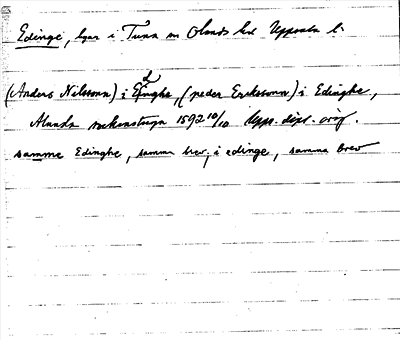 Edinge, byar i Tuna sn Olands hd Uppsala l.
(Anders Nilsson) i Edinghe, (peder Eriksson) i Edinghe,
Alunda sockenstuga 1592 10/10 Upps. dipl. orig.
samme Edinghe, samma brev; i edinge, samma brev